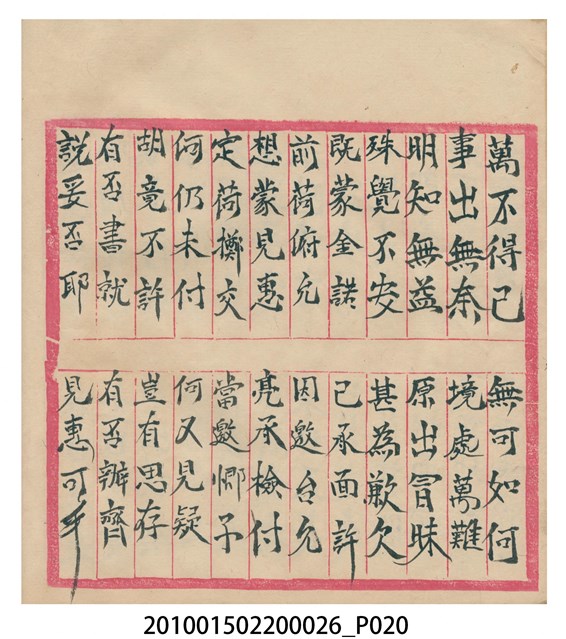 萬不得已
無可如何
事出無奈
境處萬難
明知無益
原出冒昧
殊覺不安
甚為歉欠
既蒙金諾
已承面許
前荷俯允
因邀台允
想蒙見惠
亮承檢付
定荷擲交
當邀予
何仍未付
何又見疑
胡竟不許
豈有思存
有否書就
有否辦齊
說妥否耶
見惠可乎
201001502200026_P020